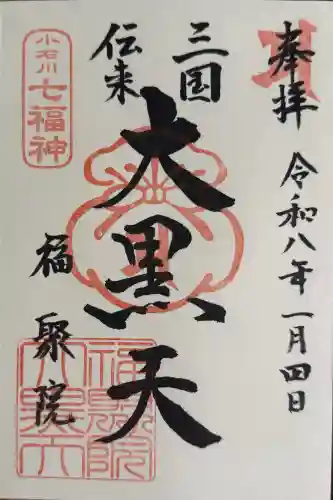 奉拝
令和八年一月四日
三国
伝来
大黒天
小石川
七福神
福聚院